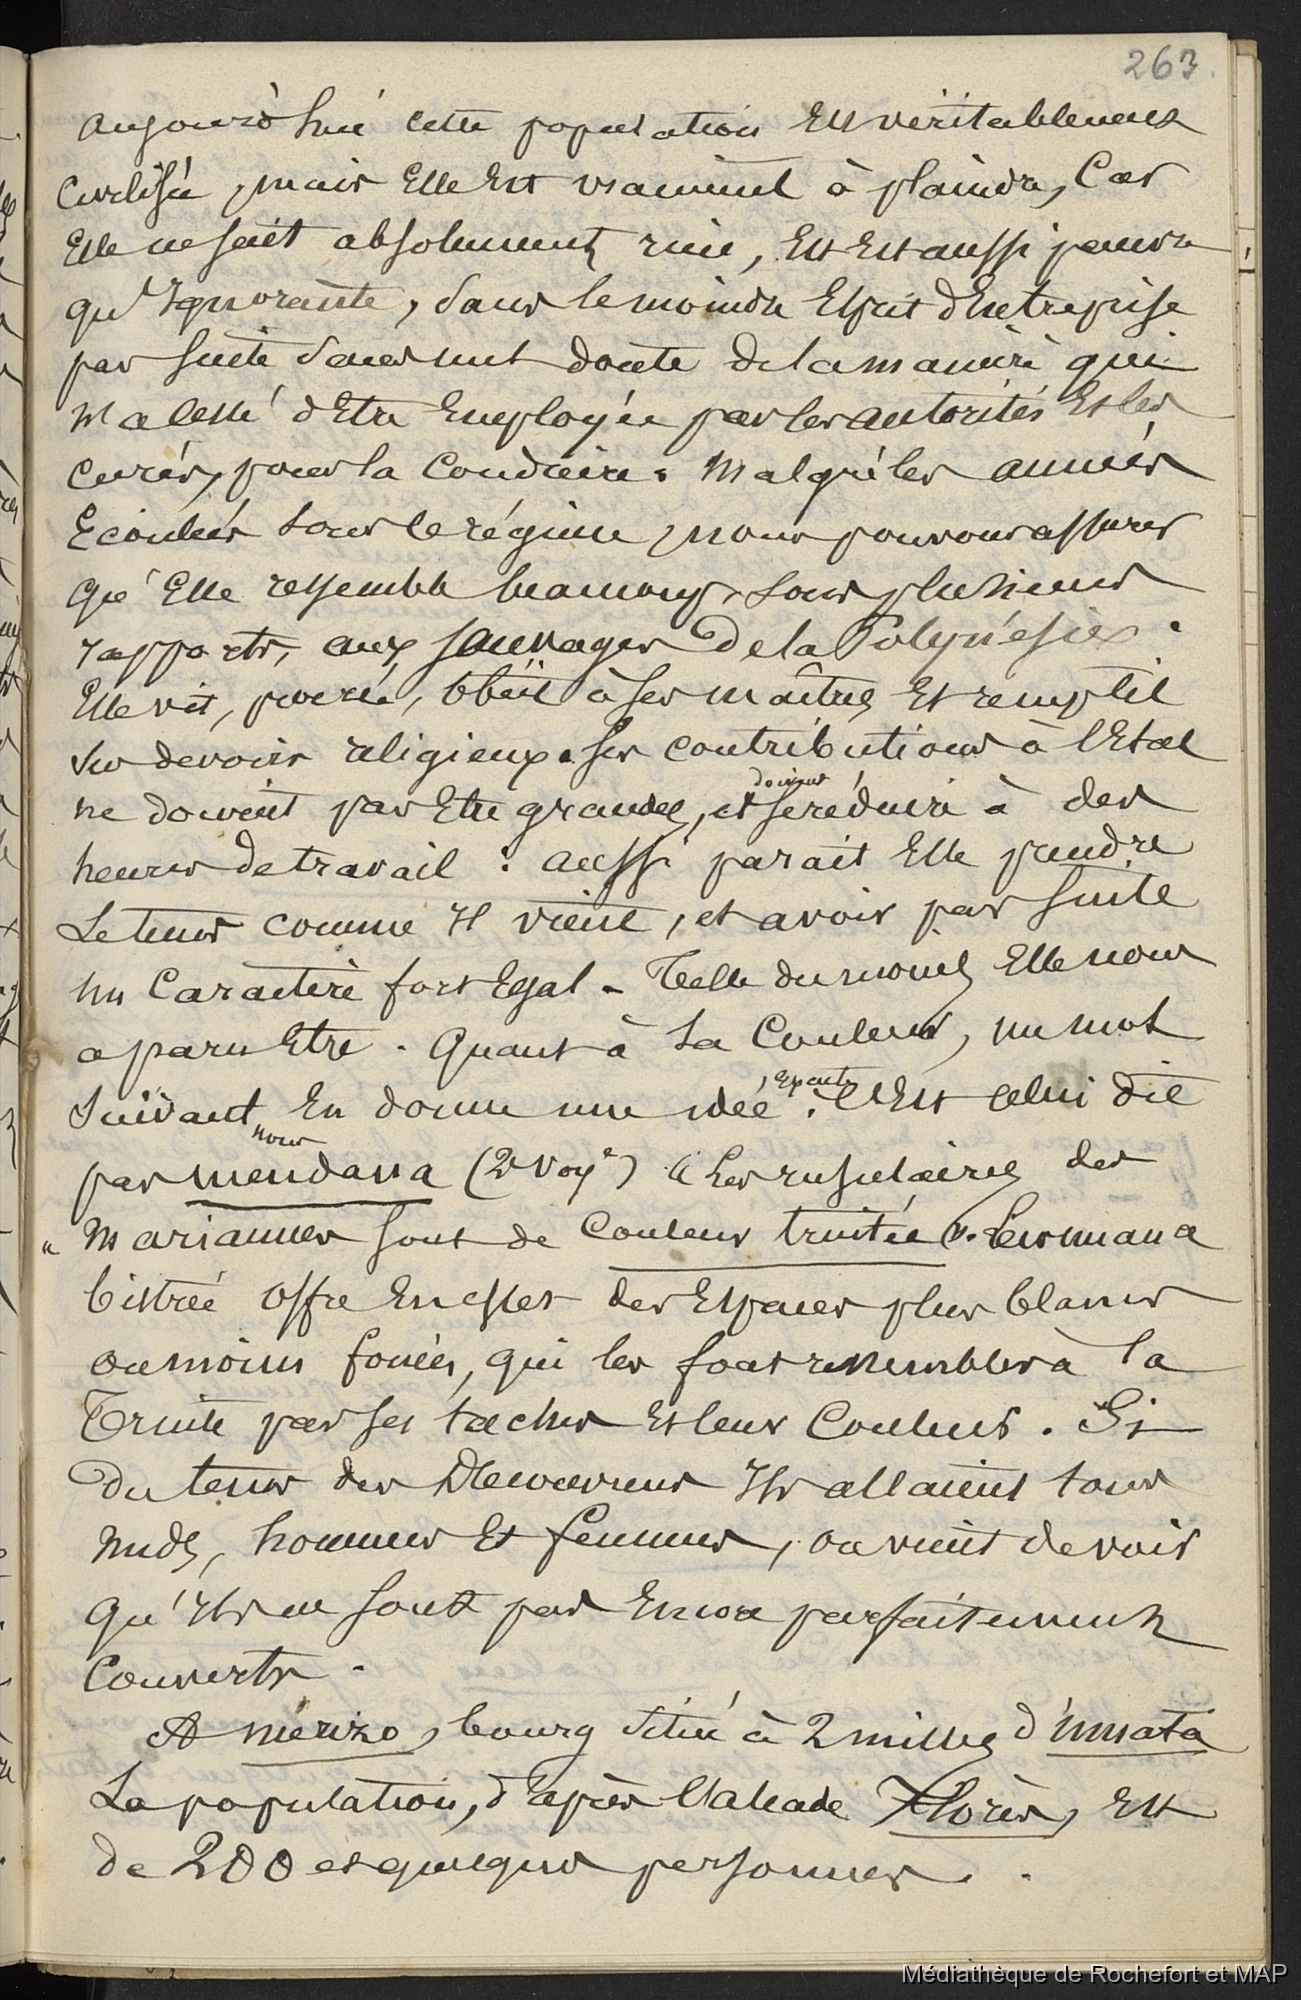 263.
aujourd'hui cette population Est véritablement
Civilisée, mais Elle Est vraiment à plaindre, Car
Elle ne sait absolument rien, Elle Est aussi pauvre
qu'Ignorante, sans le moindre Esprit d'Entreprise
par suite sans nul doute de la manière qui
n'a cessé d'Etre Employée par les autorités Et les
curés, pour la Conduire. Malgré les années
Ecoulées sous le régime, nous pouvons assurer
qu'Elle ressemble beaucoup, sous plusieurs
rapports, aux sauvages de la Polynésie.
Elle vit, prie, obéit à ses maîtres Et remplit
ses devoirs religieux. Ses contributions à l'Etat
ne doivent pas Etre grandes, et doivent se réduire à des
heures de travail : aussi parait Elle prendre
Le tems comme Il vient, et avoir par suite
un Caractère fort Egal - Telle du moins Elle nous
a paru Etre. Quant à sa Couleur, un mot
suivant nous En donne une idée Exacte. C'Est celui dit
par Mendana (2e Voye) "Les insulaires des
" Mariannes sont de Couleur truitée". Leur
bistrée offre En effet des Espaces plus blancs
ou moins foncés, qui les font ressembler à la
Truite par ses taches Et leur Couleur. Si
Du tems des Ils allaient tous
nuds, hommes Et femmes, on vient de voir
qu'Ils ne sont pas Encore parfaitement
Couverts.
A Mérizo, bourg situé à 2 milles d'Umata
La population, d'après l'alcade Florès, Est
de 200 et quelques personnes.
Médiathèque de Rochefort et MAP